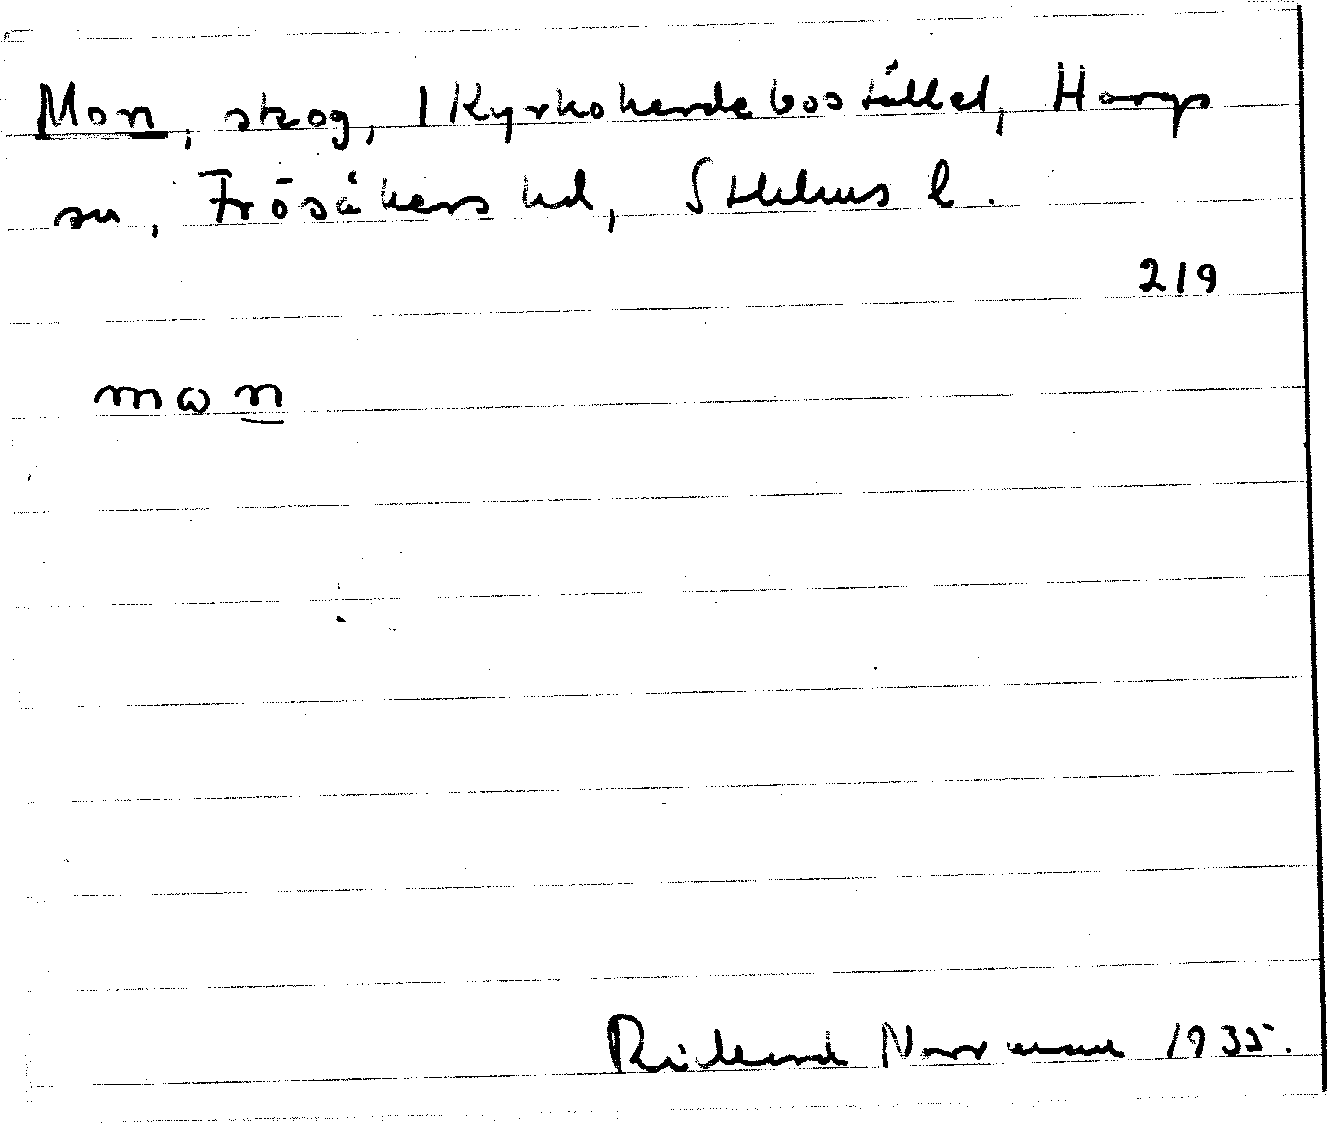 Mon, skog, 1 Kyrkoherdebostället, Hargs
sn, Frösåkers hd, Sthlms l.
219
mωn
Rickard Norrman 1935.